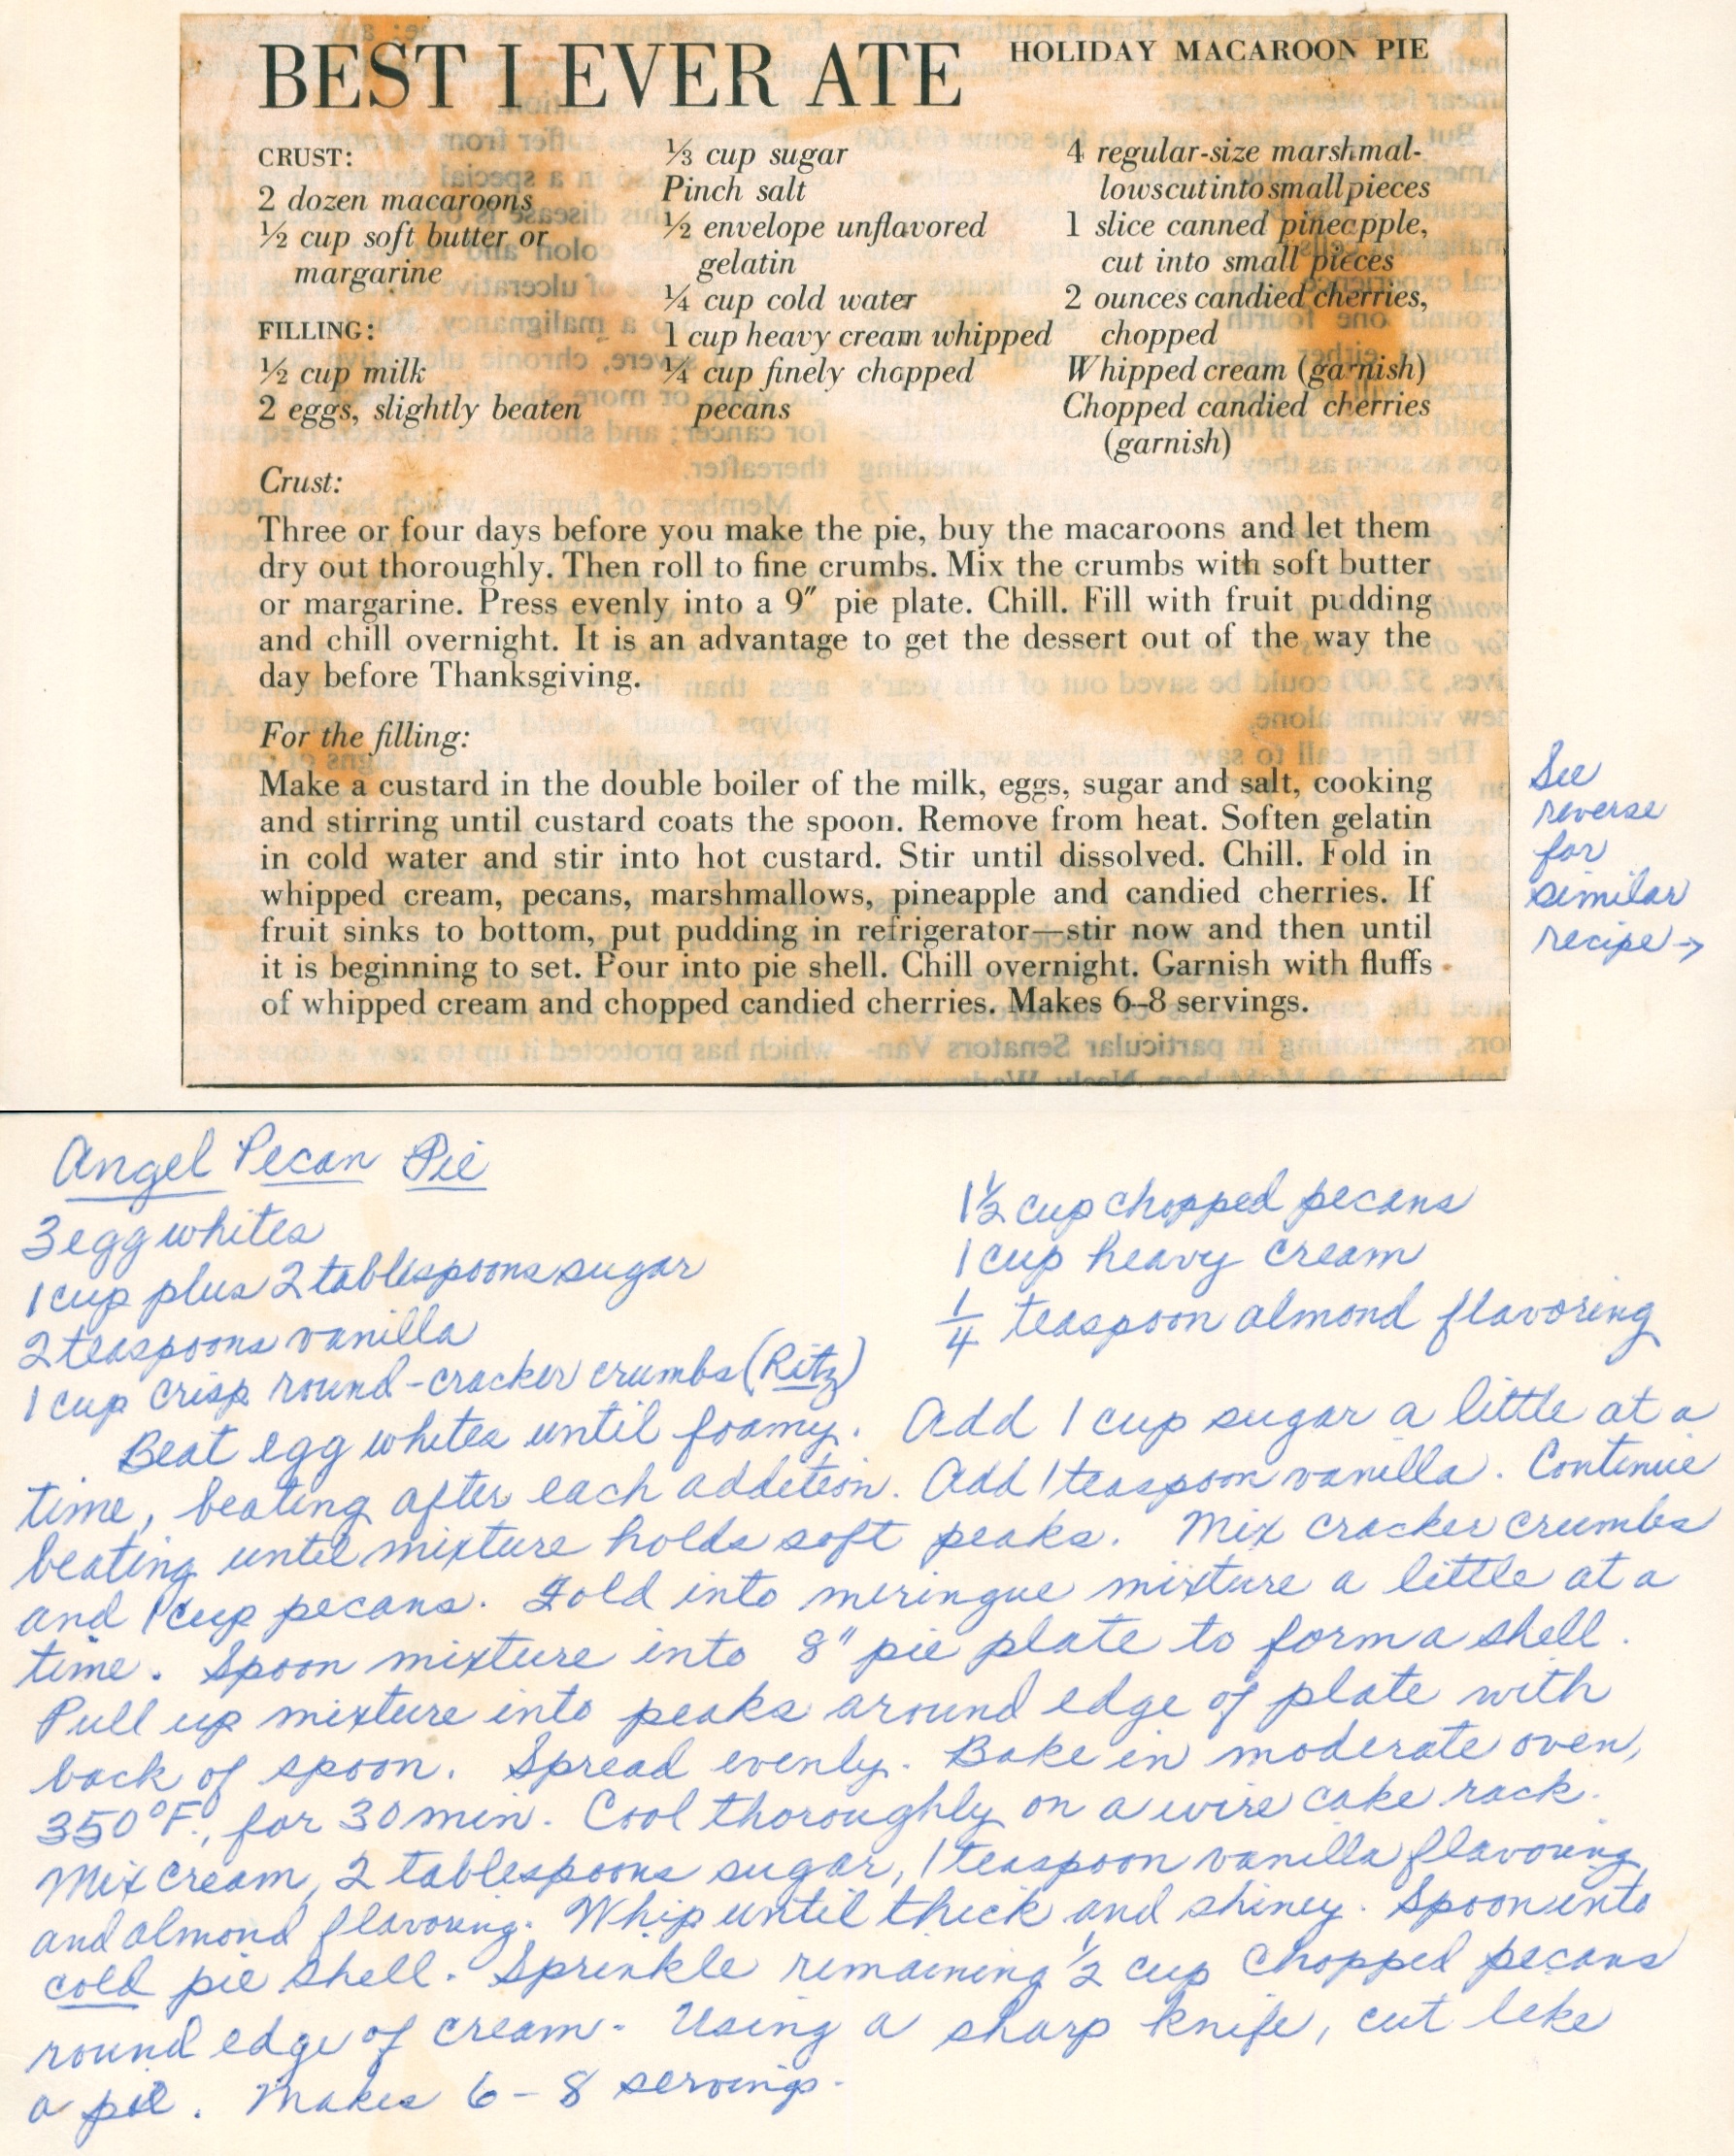 BEST I EVER ATE HOLIDAY MACAROON PIE
CRUST:
2 dozen macaroons
½ cup soft butter or
margarine
FILLING:
½ cup milk
2 eggs, slightly beaten
⅓ cup sugar
Pinch salt
½ envelope unflavored
gelatin
¼ cup cold water
1 cup heavy cream whipped
¼ cup finely chopped
pecans
4 regular-size marshmal-
lows cut into small pieces
1 slice canned pineapple,
cut into small pieces
2 ounces candied cherries,
chopped
Whipped cream (garnish)
Chopped candied cherries
(garnish)
Crust:
Three or four days before you make the pie, buy the macaroons and let them
dry out thoroughly. Then roll to fine crumbs. Mix the crumbs with soft butter
or margarine. Press evenly into a 9″ pie plate. Chill. Fill with fruit pudding
and chill overnight. It is an advantage to get the dessert out of the way the
day before Thanksgiving.
For the filling:
Make a custard in the double boiler of the milk, eggs, sugar and salt, cooking
and stirring until custard coats the spoon. Remove from heat. Soften gelatin
in cold water and stir into hot custard. Stir until dissolved. Chill. Fold in
whipped cream, pecans, marshmallows, pineapple and candied cherries. If
fruit sinks to bottom, put pudding in refrigerator—stir now and then until
it is beginning to set. Pour into pie shell. Chill overnight. Garnish with fluffs
of whipped cream and chopped candied cherries. Makes 6–8 servings.
See
reverse
for
similar
recipe →
Angel Pecan Pie
3 egg whites
1 cup plus 2 tablespoons sugar
2 teaspoons vanilla
1 cup crisp round-cracker crumbs (Ritz)
1½ cup chopped pecans
1 cup heavy cream
¼ teaspoon almond flavoring
Beat egg whites until foamy. Add 1 cup sugar a little at a
time, beating after each addition. Add 1 teaspoon vanilla. Continue
beating until mixture holds soft peaks. Mix cracker crumbs
and 1 cup pecans. Fold into meringue mixture a little at a
time. Spoon mixture into 8" pie plate to form a shell.
Pull up mixture into peaks around edge of plate with
back of spoon. Spread evenly. Bake in moderate oven,
350°F., for 30 min. Cool thoroughly on a wire cake rack.
Mix cream, 2 tablespoons sugar, 1 teaspoon vanilla flavoring,
and almond flavoring. Whip until thick and shiney. Spoon into
cold pie shell. Sprinkle remaining ½ cup chopped pecans
round edge of cream. Using a sharp knife, cut like
a pie. Makes 6-8 servings.